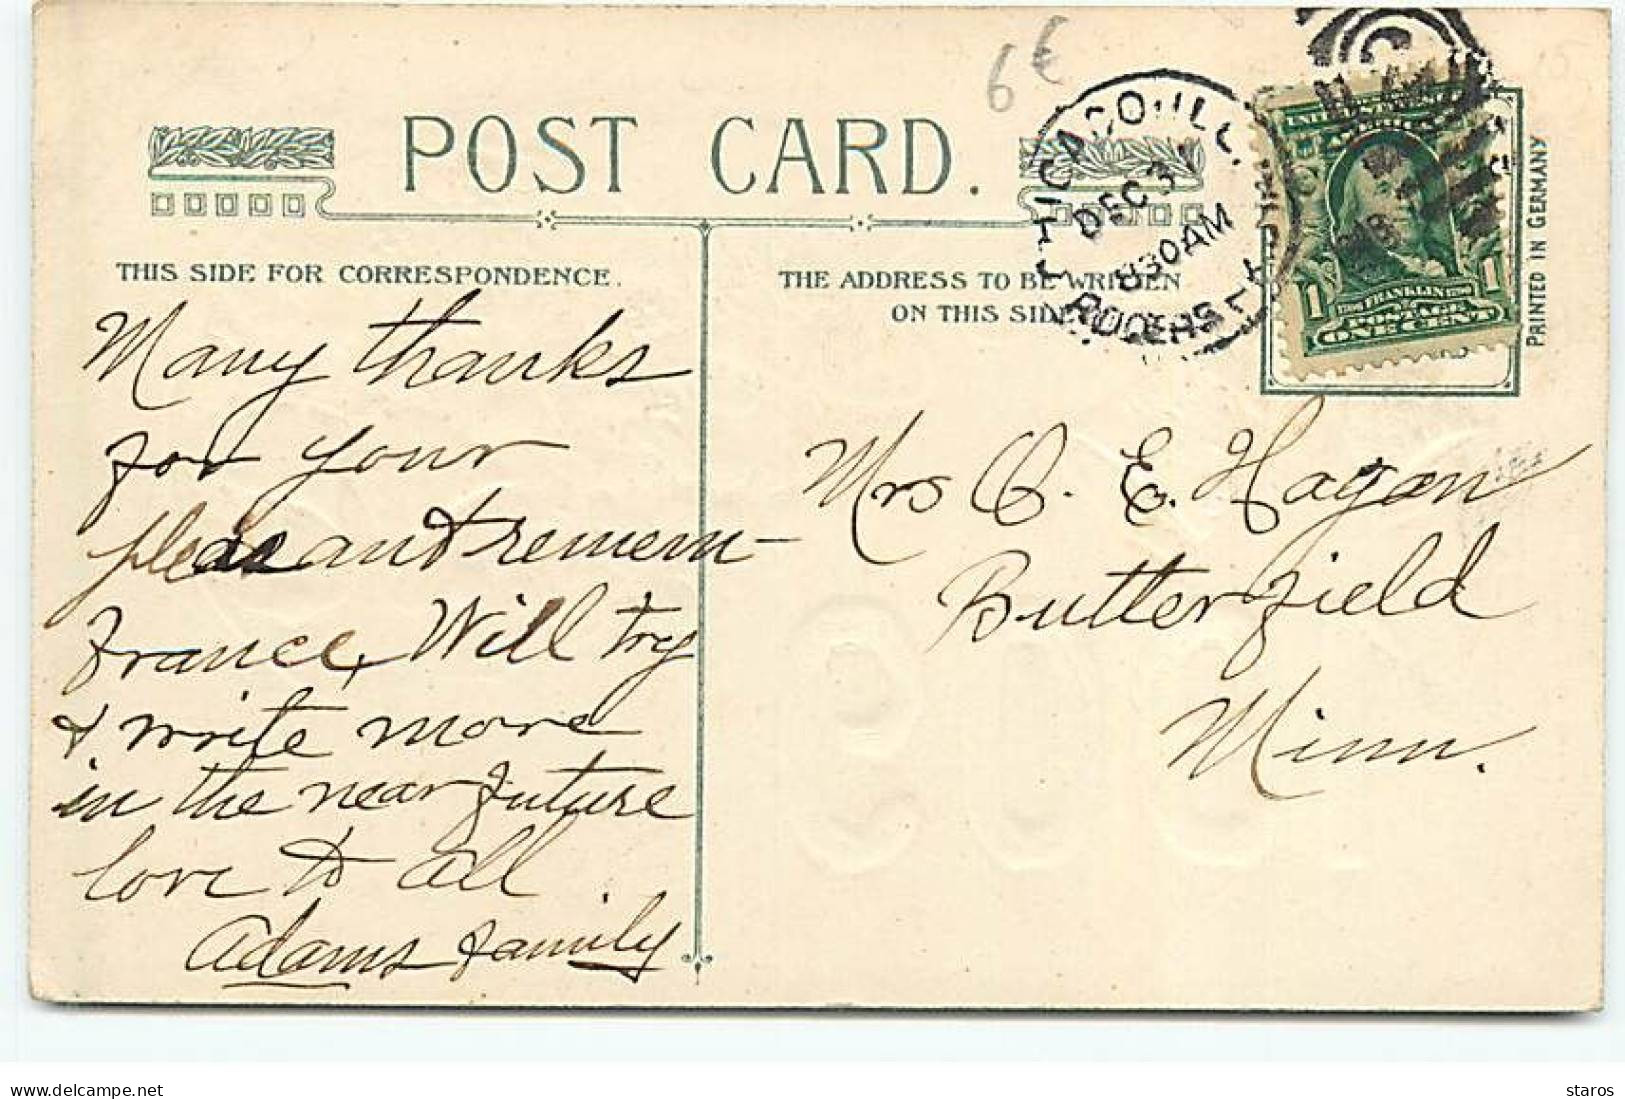 6€
POST CARD.
CHICAGO, ILL.
DEC 31
830AM
ROGERS
THIS SIDE FOR CORRESPONDENCE.
THE ADDRESS TO BE WRITTEN
ON THIS SIDE
PRINTED IN GERMANY
1 FRANKLIN 1
POSTAGE
ONE CENT
Many thanks
for your
pleasant remem-
france, Will try
& write more
in the near future
love to all.
Adams family
Mrs O. E. Hagen
Butterfield
Minn.
www.delcampe.net
staros